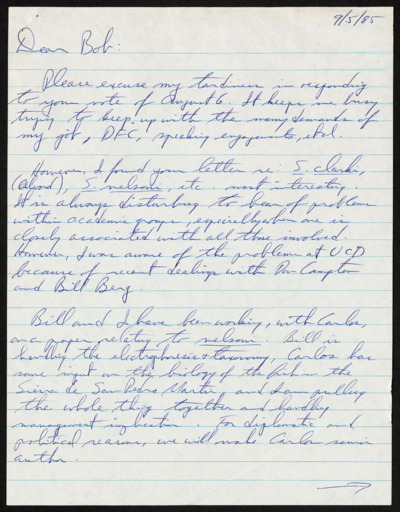 9/5/85
Dear Bob:
Please excuse my tardiness in responding
to your note of August 6. It keeps me busy
trying to keep up with the many demands of
my job, DFC, speaking engagements, etal.
However, I found your letter re: S. clarki,
(alvord), S. nelsoni, etc most interesting.
It is always disturbing to hear of problems
within academic groups, especially when one is
closely associated with all those involved.
However, I was aware of the problems at UCD
because of recent dealings with Don Campton
and Bill Berg.
Bill and I have been working, with Carlos,
on a paper relating to nelsoni. Bill is
handling the electrophoresis & taxonomy, Carlos has
some input on the biology of the fish in the
Sierra de San Pedro Martir and I am pulling
the whole thing together and handling
management implications. For diplomatic and
political reasons, we will make Carlos senior
author.